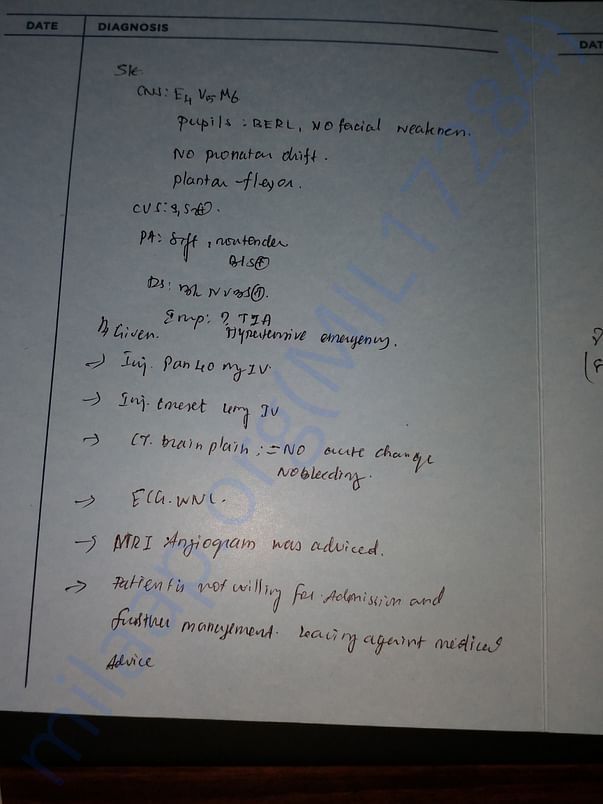 DATE DIAGNOSIS
DAT
S/E
CNS: E4 V5 M6
pupils : BERL, NO facial weakness.
NO pronator drift.
plantar - flexor.
CVS: S1S2⊕.
PA: Soft, nontender
BLS⊕
RS: BL NVBS⊕.
Imp: ? TIA
Hypertensive emergency.
Given.
→ Inj. Pan 40 mg IV.
→ Inj. Emeset 4mg IV
→ CT. brain plain := NO acute change
NO bleeding.
→ ECG. WNL.
→ MRI Angiogram was adviced.
→ Patient is not willing for Admission and
further management. Leaving against medical
Advice
milaap.org(MIL17284)